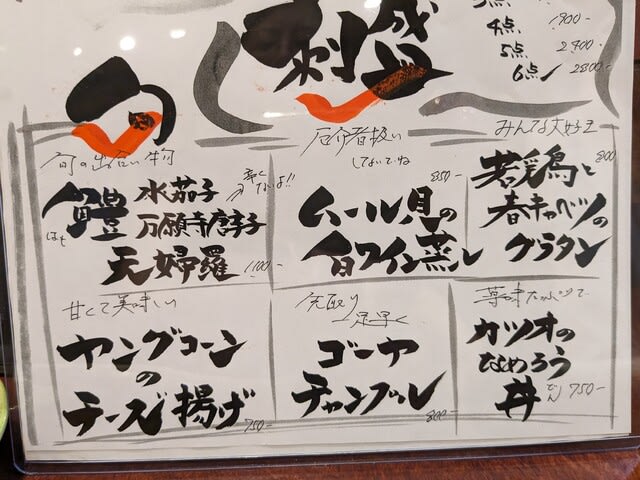 旬
刺
盛
4点 1900-
5点 2400-
6点 2800-
旬の出会い物
鱧
はも
水茄子
万願寺唐辛子
天婦羅
1,100-
厄介者扱い
しないでね
850-
ムール貝の
白ワイン蒸し
みんな大好き
若鶏と
春キャベツの
グラタン
800
甘くて美味しい
ヤングコーン
の
チーズ揚げ
750-
先取り
一足早く
ゴーヤ
チャンプルー
800-
薬味たっぷりで
カツオの
なめろう
丼
どん
750-